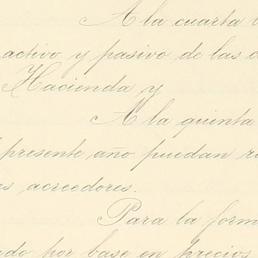 A la cuarta
activo y pasivo de las
Hacienda y
A la quinta
presente año puedan
acreedores.
Para la
por base en precios